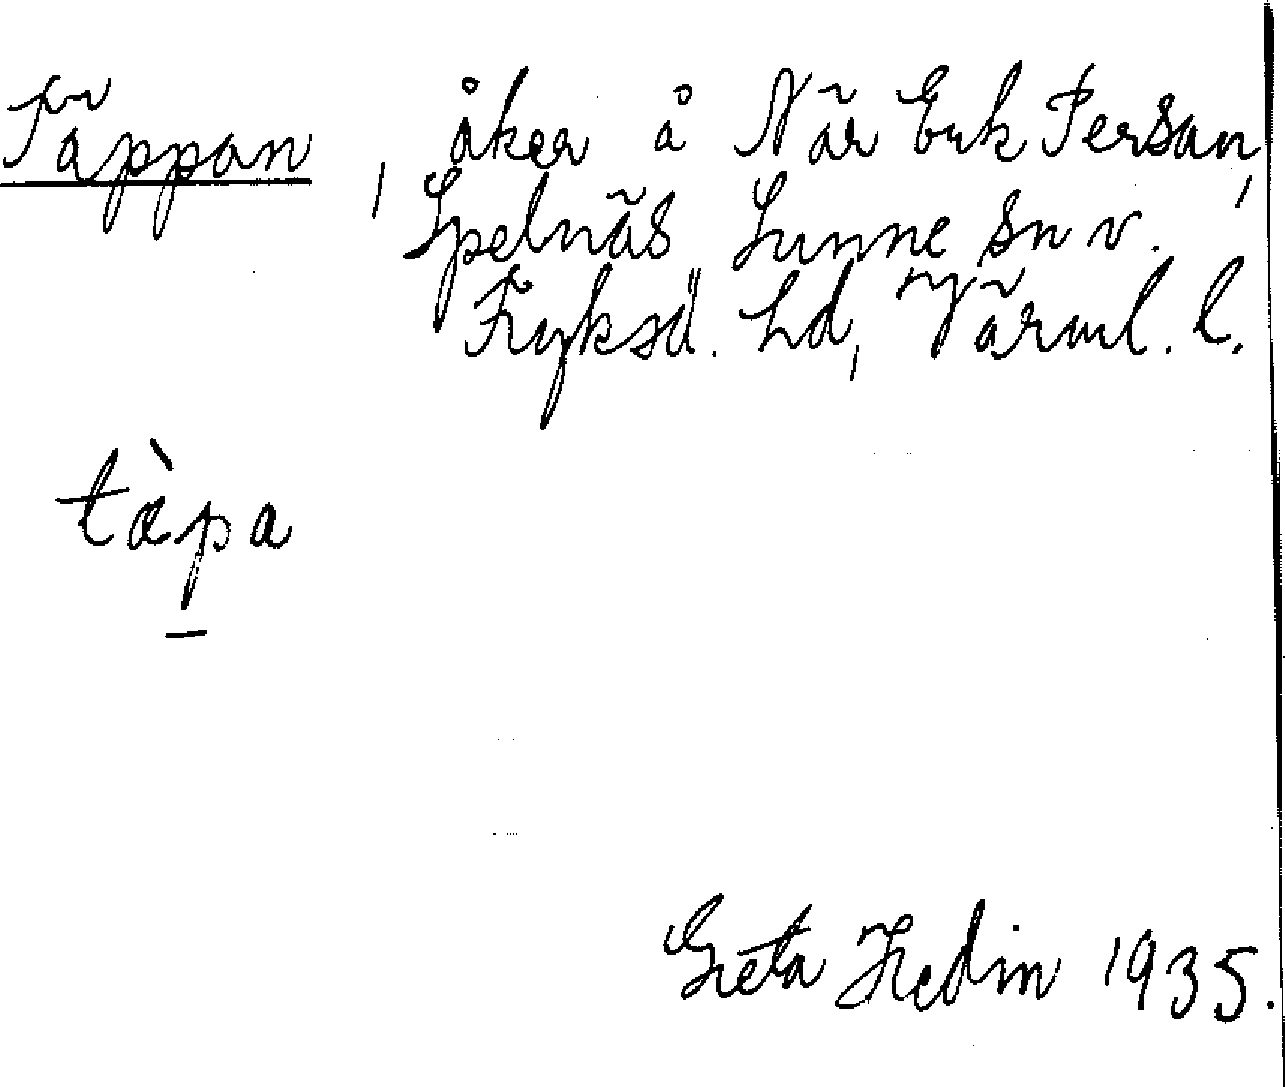 Täppan, åker å När Erik Persan,
Spelnäs Sunne sn v.
Fryksd. hd, Värml. l.
tæ̀pa
Greta Hedin 1935.